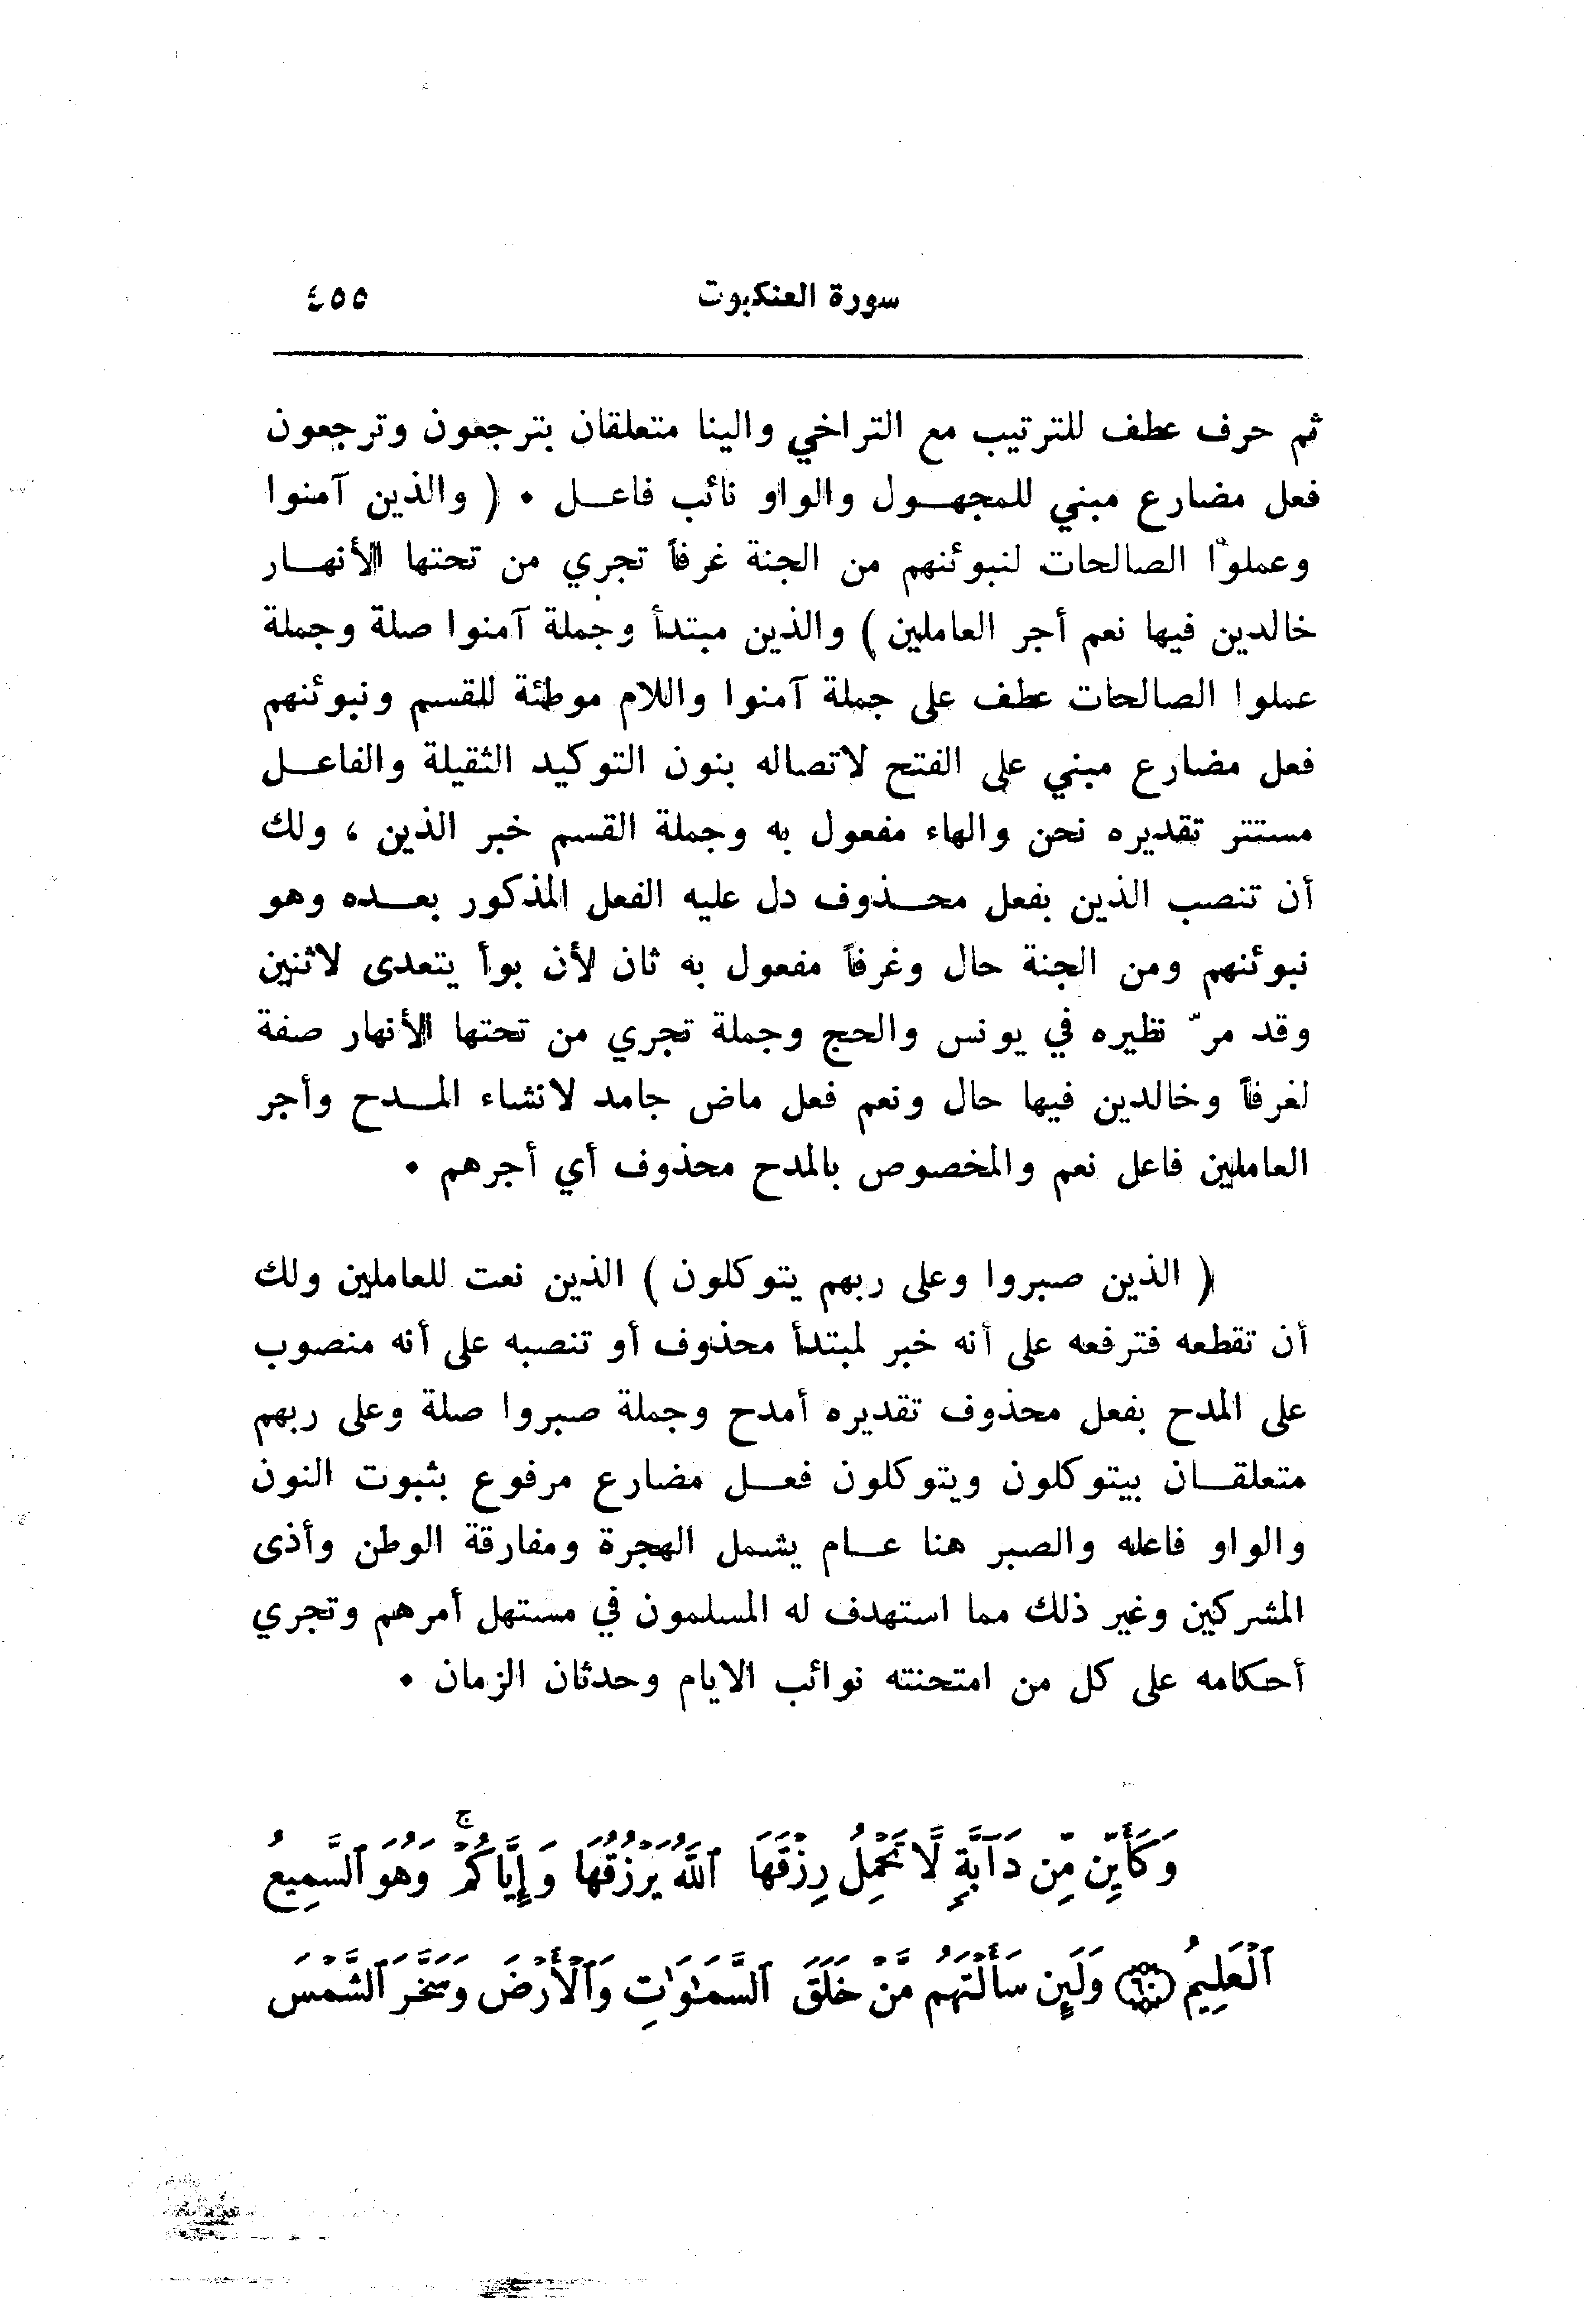 سورة العنكبوت ٤٥٥
ثم حرف عطف للترتيب مع التراخي والينا متعلقان بترجعون وترجعون
فعل مضارع مبني للمجهـــول والواو نائب فاعــل ٠ ( والذين آمنوا
وعملوا الصالحات لنبوئنهم من الجنة غرفاً تجري من تحتها الأنهــار
خالدين فيها نعم أجر العاملين ) والذين مبتدأ وجملة آمنوا صلة وجملة
عملوا الصالحات عطف على جملة آمنوا واللام موطئة للقسم ونبوئنهم
فعل مضارع مبني على الفتح لاتصاله بنون التوكيد الثقيلة والفاعــل
مستتر تقديره نحن والهاء مفعول به وجملة القسم خبر الذين ، ولك
أن تنصب الذين بفعل محـــذوف دل عليه الفعل المذكور بعــده وهو
نبوئنهم ومن الجنة حال وغرفاً مفعول به ثان لأن بوأ يتعدى لاثنين
وقد مرّ نظيره في يونس والحج وجملة تجري من تحتها الأنهار صفة
لغرفاً وخالدين فيها حال ونعم فعل ماض جامد لانشاء المــدح وأجر
العاملين فاعل نعم والمخصوص بالمدح محذوف أي أجرهم ٠
( الذين صبروا وعلى ربهم يتوكلون ) الذين نعت للعاملين ولك
أن تقطعه فترفعه على أنه خبر لمبتدأ محذوف أو تنصبه على أنه منصوب
على المدح بفعل محذوف تقديره أمدح وجملة صبروا صلة وعلى ربهم
متعلقــان بيتوكلون ويتوكلون فعــل مضارع مرفوع بثبوت النون
والواو فاعله والصبر هنا عــام يشمل الهجرة ومفارقة الوطن وأذى
المشركين وغير ذلك مما استهدف له المسلمون في مستهل أمرهم وتجري
أحكامه على كل من امتحنته نوائب الايام وحدثان الزمان ٠
وَكَأَيِّن مِّن دَآبَّةٍ لَّا تَحْمِلُ رِزْقَهَا ٱللَّهُ يَرْزُقُهَا وَإِيَّاكُمْۚ وَهُوَ ٱلسَّمِيعُ
ٱلْعَلِيمُ ﴿٦٠﴾ وَلَئِن سَأَلْتَهُم مَّنْ خَلَقَ ٱلسَّمَٰوَٰتِ وَٱلْأَرْضَ وَسَخَّرَ ٱلشَّمْسَ